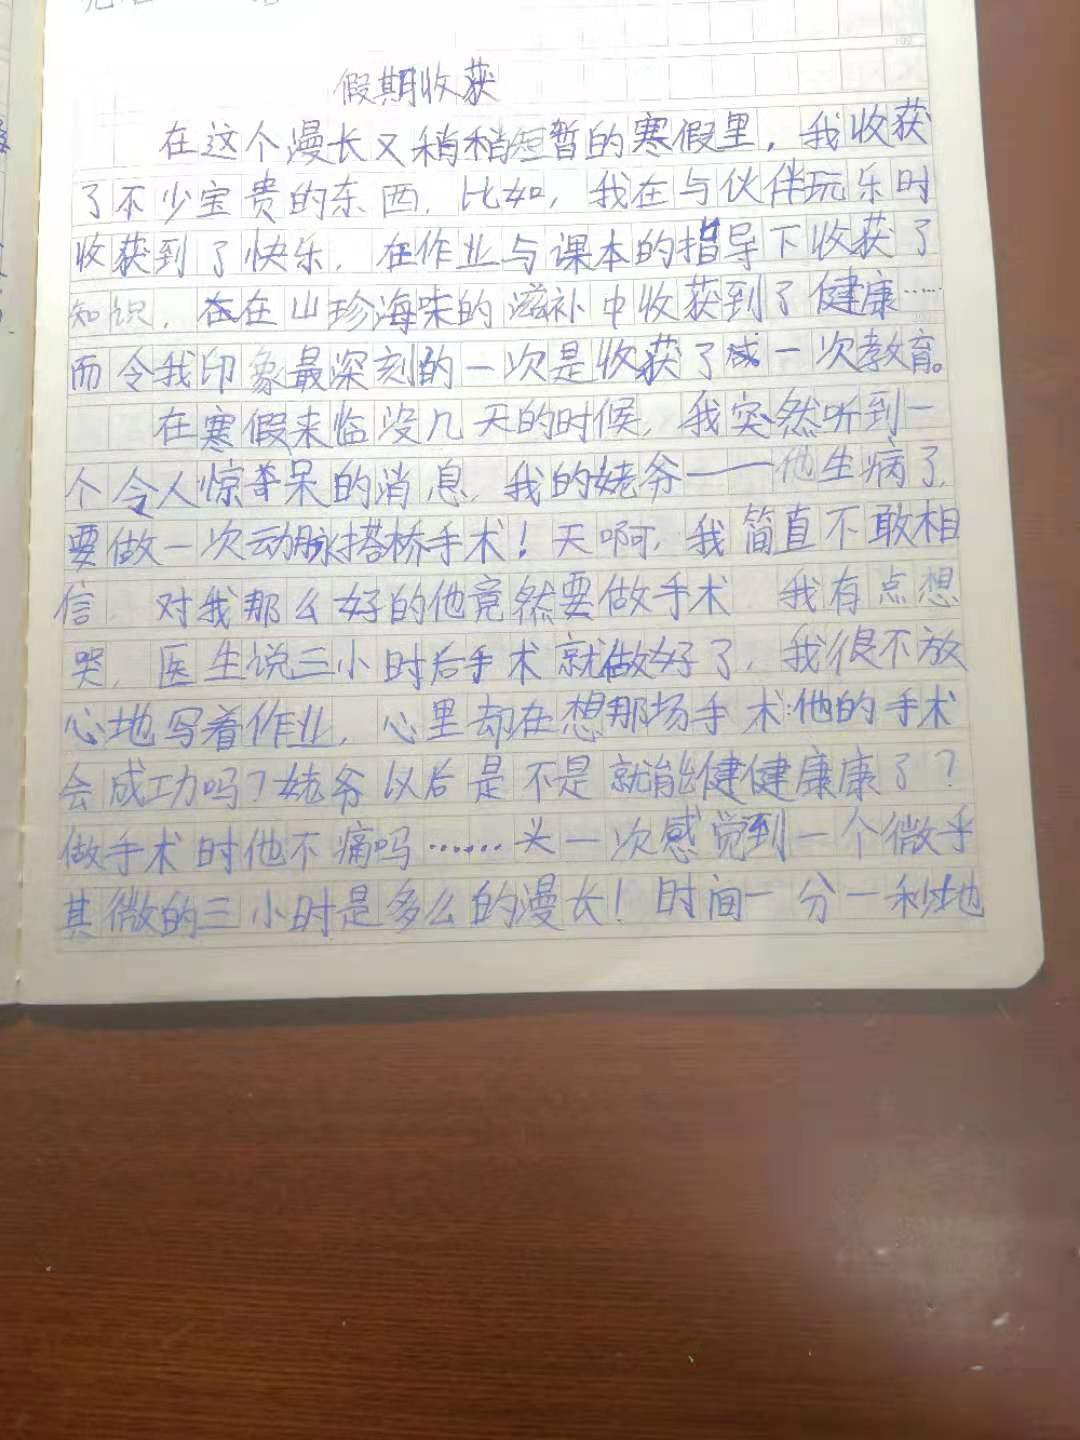 假期收获
在这个漫长又稍稍短暂的寒假里，我收获
了不少宝贵的东西，比如，我在与伙伴玩乐时
收获到了快乐，在作业与课本的指导下收获了
知识，在在山珍海味的滋补中收获到了健康……
而令我印象最深刻的一次是收获了感一次教育。
在寒假来临没几天的时候，我突然听到一
个令人惊呆的消息，我的姥爷——他生病了，
要做一次动脉搭桥手术！天啊，我简直不敢相
信，对我那么好的他竟然要做手术 我有点想
哭，医生说三小时后手术就做好了，我很不放
心地写着作业，心里却在想那场手术：他的手术
会成功吗？姥爷以后是不是就能健健康康了？
做手术时他不痛吗……头一次感觉到一个微乎
其微的三小时是多么的漫长！时间一分一秒地